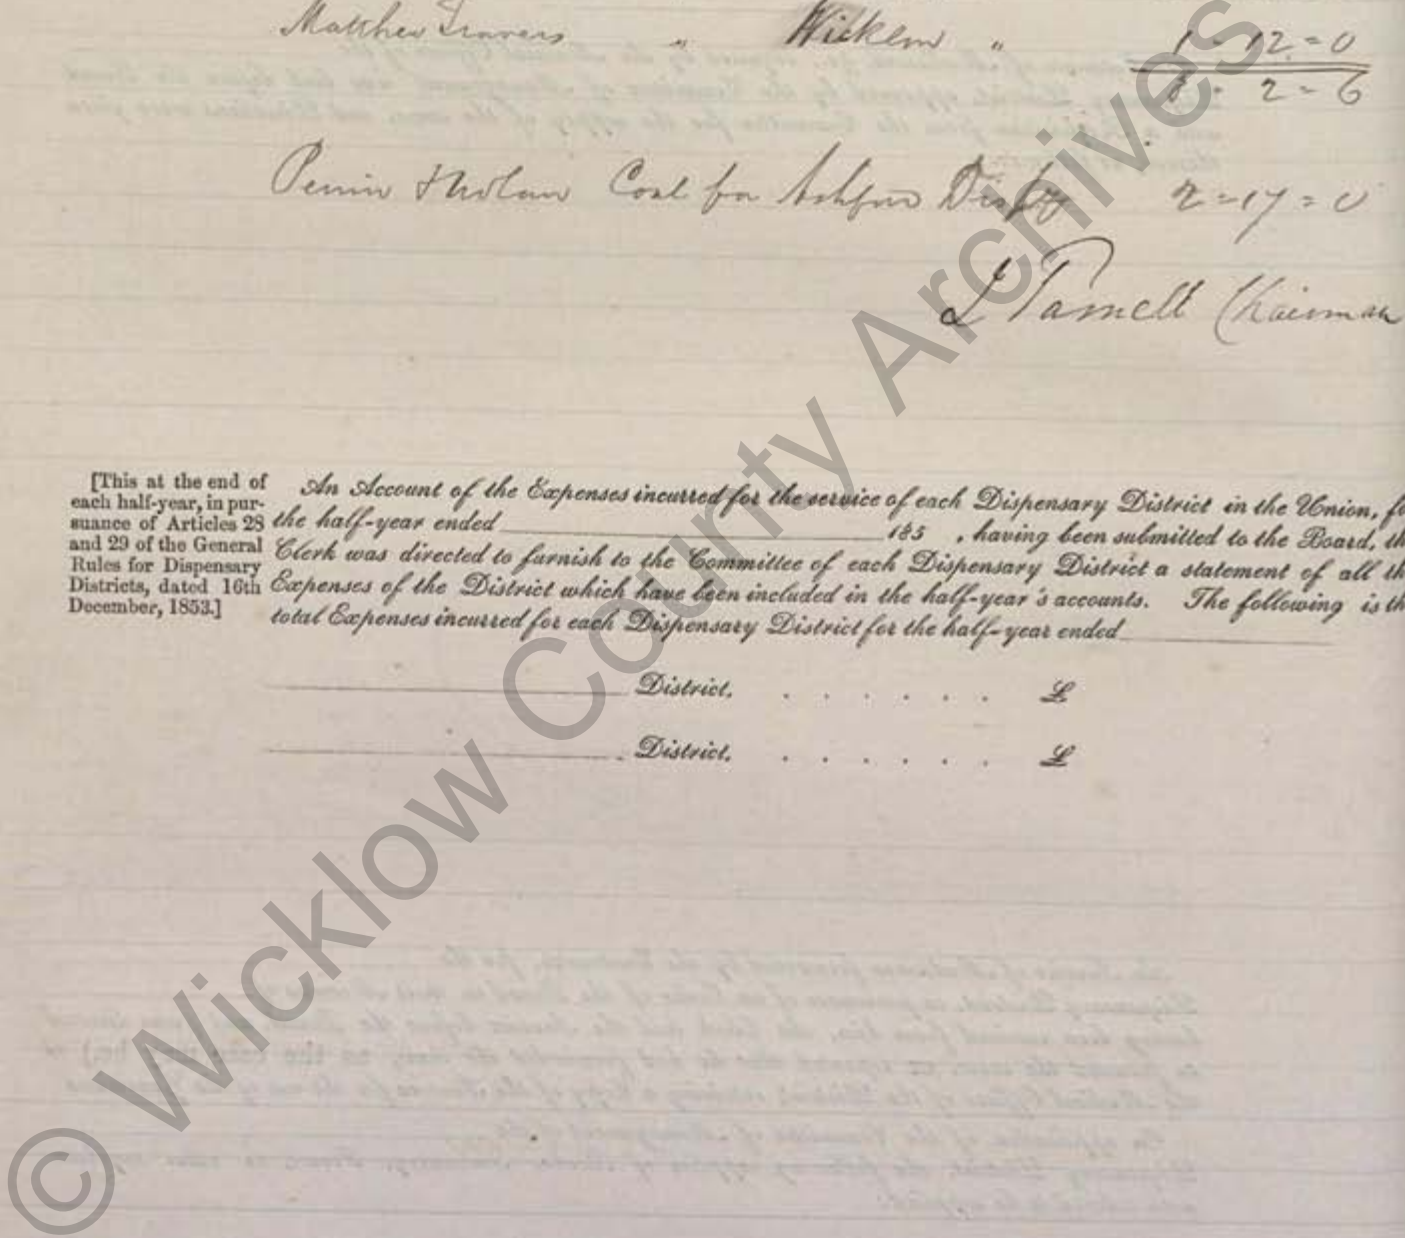 Matthew Travers " Wicklow " 1 - 12 = 0
8 - 2 = 6
Coal for Ashford Dispy 2 = 17 = 0
Parnell Chairman
[This at the end of each half-year, in pur-
suance of Articles 28
and 29 of the General
Rules for Dispensary
Districts, dated 16th
December, 1853.]
An Account of the Expenses incurred for the service of each Dispensary District in the Union, fo
the half-year ended 185 , having been submitted to the Board, th
Clerk was directed to furnish to the Committee of each Dispensary District a statement of all th
Expenses of the District which have been included in the half-year's accounts. The following is th
total Expenses incurred for each Dispensary District for the half-year ended
District. . . . . . . £
District. . . . . . . £
© Wicklow County Archives